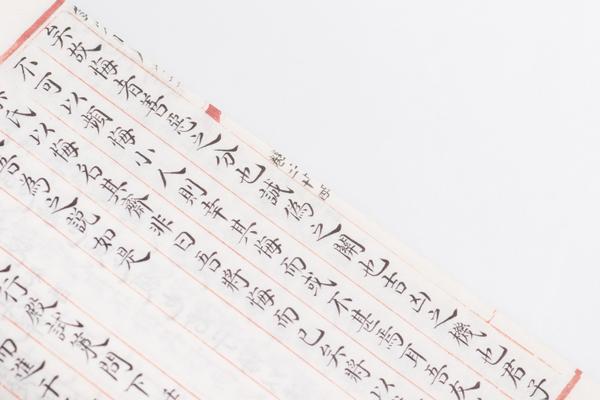 矣故悔者善惡之分也誠偽之關也吉凶之機也君子
不可以頻悔小人則幸其悔而或不甚焉耳吾友
氏以悔名其齋非曰吾將悔而已矣將以
吾為之說如是
行殿試第問下
而進